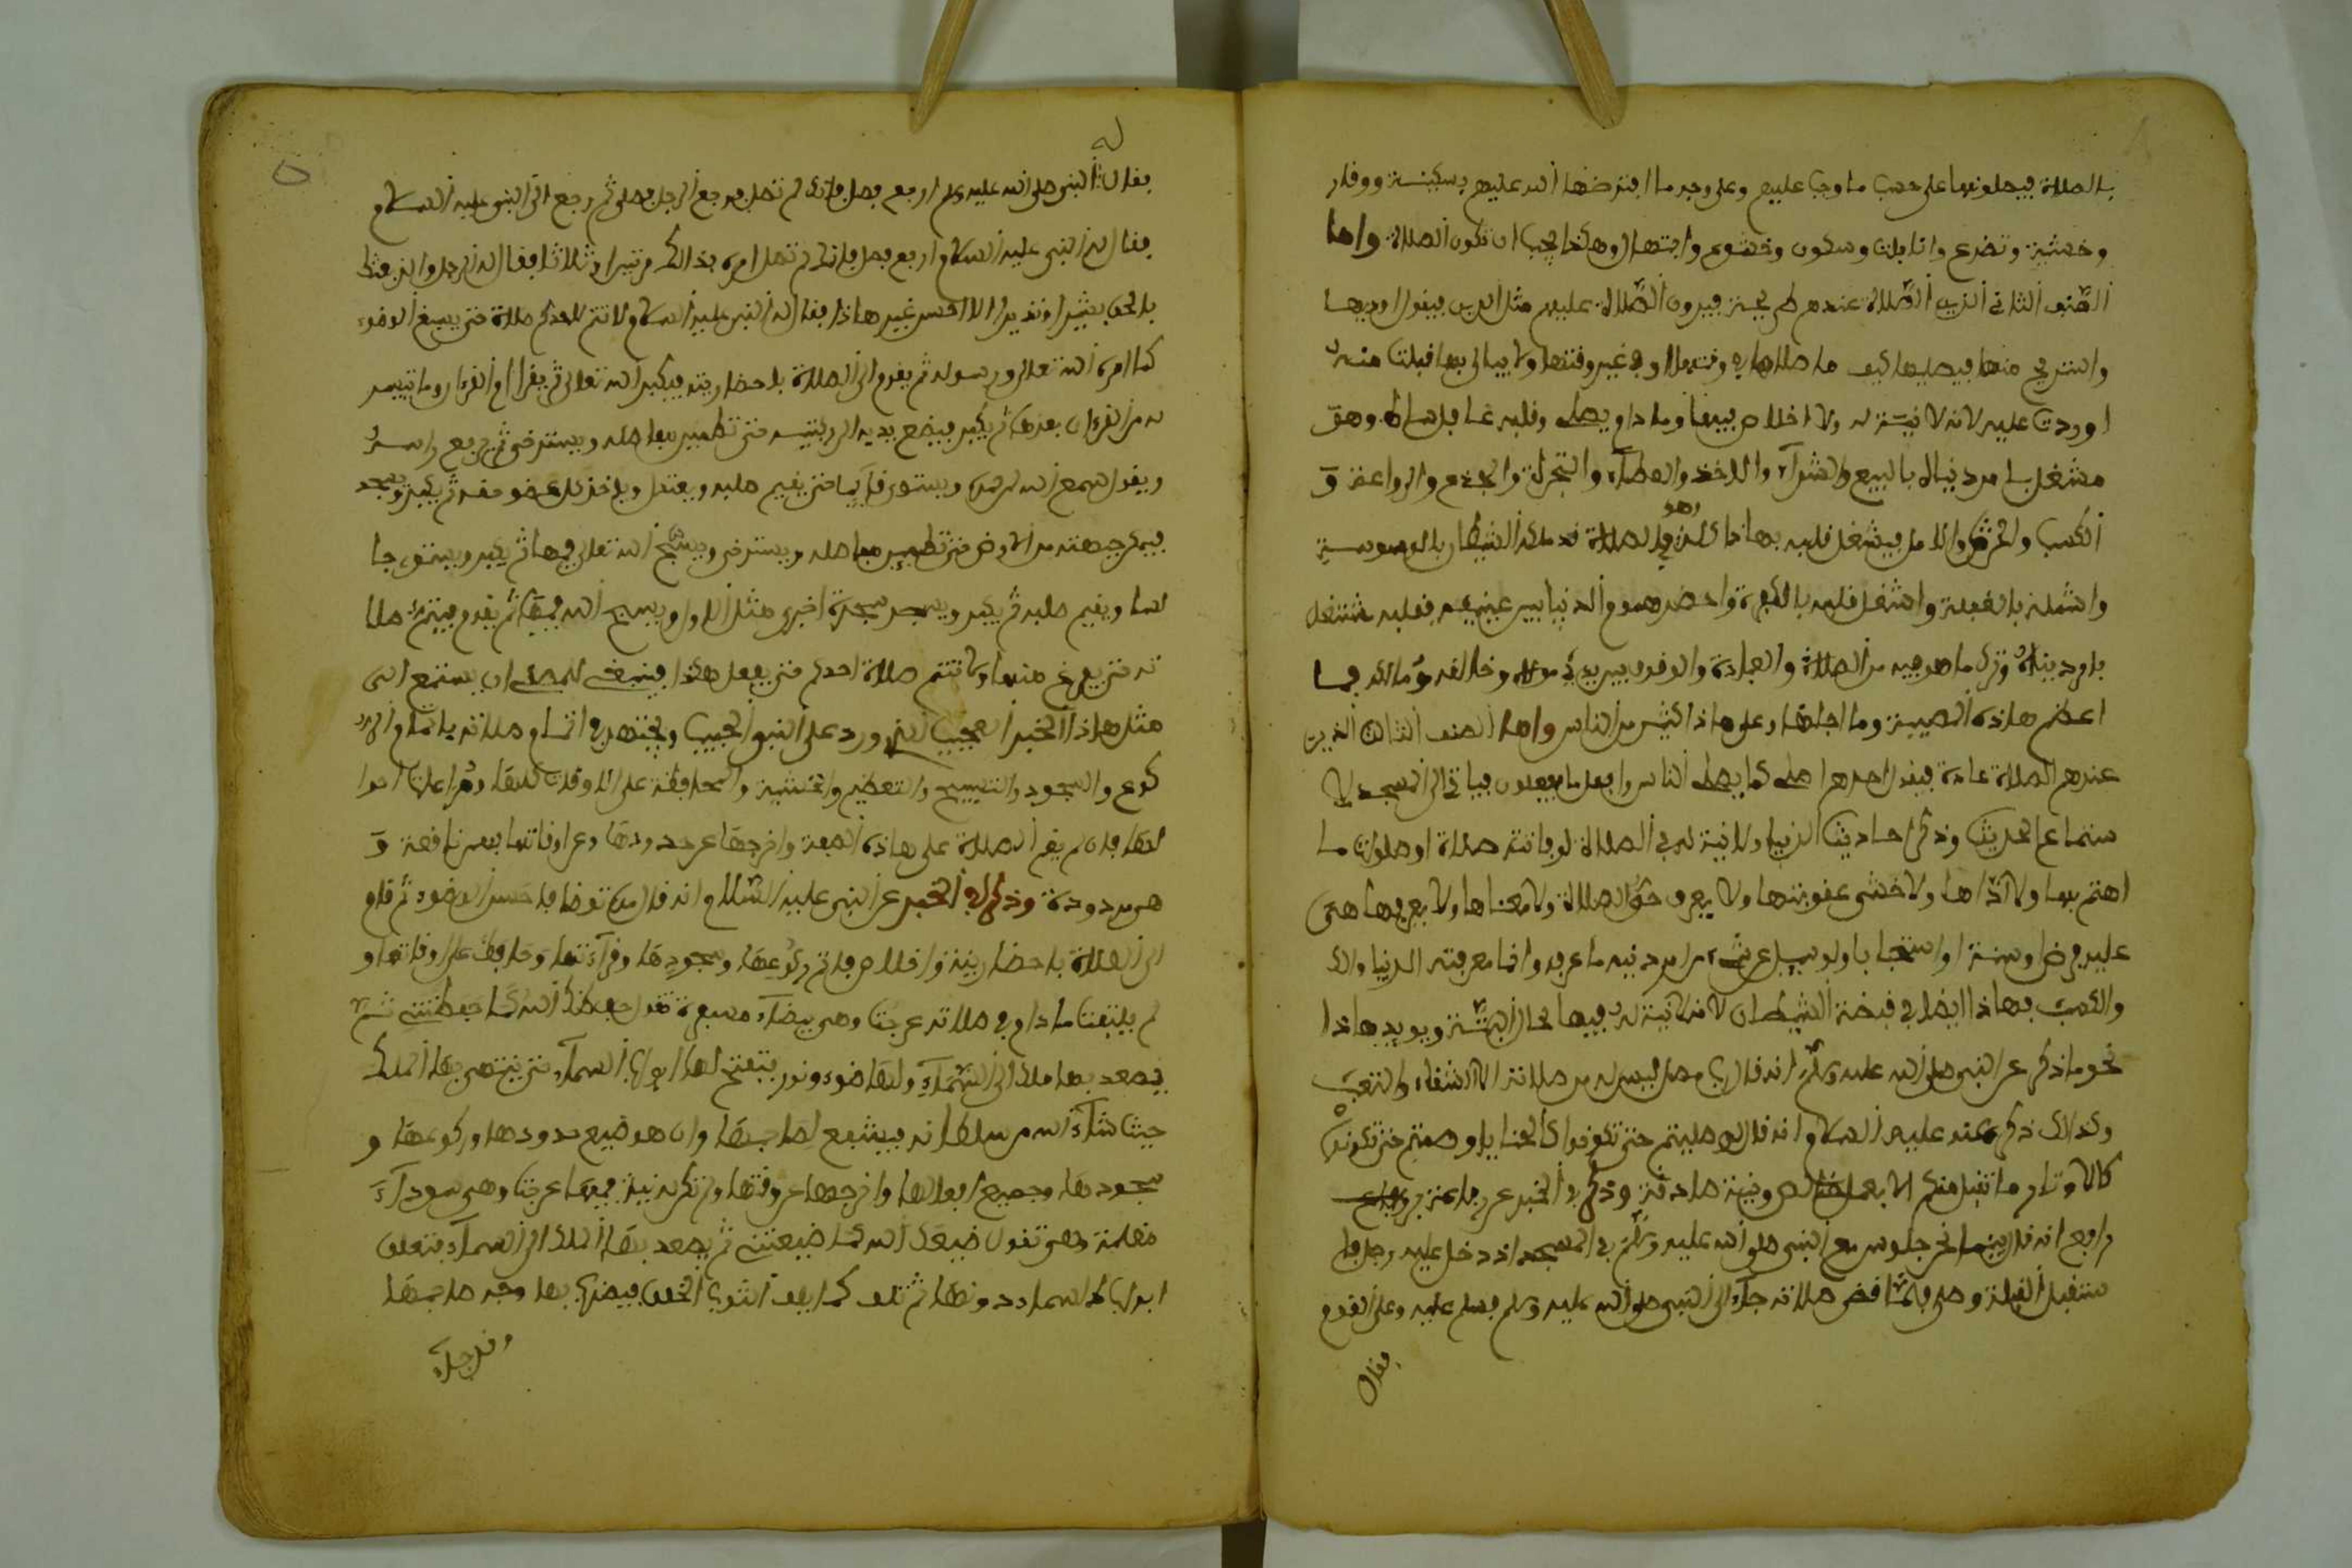 بالصلاة فيصلونها على حسب ما وجب عليهم وعلى وجه ما افترضها الله عليهم بسكينة ووقار
وخشية وتضرع وانابات وسكون وخشوع وابتهال وهكذا يجب ان تكون الصلاة واما
الصنف الثاني الذين الصلاة عندهم فيرون الصلاة عليهم مثل الدين فيقول اوديها
واستريح منها فيصليها كيف ما صلاها في وقتها او في غير وقتها ولا يبالي بها قبلت منه
او ردت عليه لانه لا نية له ولا اخلاص فيها وما دام يصلي وقلبه غافل ساه وهو
مشغل بامر دنياه بالبيع والشراء والاخذ والعطاء والتجرة و
الكسب والحرث والامل فيشغل قلبه بهاذا كله وهو في الصلاة قد ملكه الشيطان بالوسوسة
واشمله بالغفلة واشغل قلبه بالفكرة واحضر هموم الدنيا بين عينيه فقلبه مشتغل
بامر دنياه وترك ما هو فيه من الصلاة والعبادة والوقوف بين يدي مولاه وخالقه ومالكه فما
اعظم هاذه المصيبة وما اجلها وعلى هاذا كثير من الناس واما الصنف الثالث الذين
عندهم الصلاة عادة فيقول احدهم اصلي كما يصلي الناس وافعل ما يفعلون فياتي الى المسجد لا
ستماع الحديث وذكر احاديث الدنيا ولا نية له في الصلاة لو فاتته صلاة او صلوات ما
اهتم بها ولا اذاها ولا خشي عقوبتها ولا يعرف حق الصلاة ولا معناها ولا يعرفها هي
عليه فرض او سنة او استحبابا ولو سيل عن شيء من امر دنيه ما عرفه وانما معرفته الدنيا والا
والكسب فهاذا ايضا في قبضة الشيطان لانه لا نية له فيها
نحو ما ذكر عن النبي صلى الله عليه وسلم انه قال رب مصل ليس له من صلاته الا الشقاء والتعب
وكذالك ذكر عنه عليه السلام انه قال لو صليتم حتى تكونوا كالحنايا وصمتم حتى تكونوا
كالاوتار ما تقبل منكم الا بعمل خالص ونية صادقة وذكر في الخبر عن رفاعة بن
رافع انه قال بينما نحن جلوس مع النبي صلى الله عليه وسلم في المسجد اذ دخل عليه رجل فا
ستقبل القبلة وصلى فلما قضى صلاته جاء الى النبي صلى الله عليه وسلم فسلم عليه وعلى القوم
فقال
فقال له النبي صلى الله عليه وسلم ارجع فصل فانك لم تصل فرجع الرجل فصلى ثم رجع الى النبي عليه السلام
فقال له النبي عليه السلام ارجع فصل فانك لم تصل امره بذالك مرتين او ثلاثا فقال له الرجل والذي بعثك
بالحق بشيرا ونذيرا لا احسن غير هاذا فقال له النبي عليه السلام لا تتم لاحدكم صلاة حتى يسبغ الوضوء
كما امره الله تعالى ورسوله ثم يقوم الى الصلاة باحضار نية فيكبر الله تعالى ثم يقرا ام القرءان وما تيسر
له من القرءان بعدها ثم يكبر فيضع يديه الى ركبتيه حتى تطمين مفاصله ويسترخي ثم يرفع راسه
ويقول سمع الله لمن حمده ويستوي قايما حتى يقيم صلبه ويعتدل وياخذ كل عضو حقه ثم يكبر ويسجد
فيمكن جبهته من الارض حتى تطمين مفاصله ويسترخي ويسبح الله تعالى فيها ثم يكبر ويستوي جا
لسا ويقيم صلبه ثم يكبر ويسجد سجدة اخرى مثل الاولى ويسبح الله فيها ثم يقوم فيتم صلا
ته حتى يفرغ منها ولا تتم صلاة احدكم حتى يفعل هكذا فينبغي للمصلي ان يستمع الى
مثل هاذا الخبر العجيب الذي ورد على النبي الحبيب ويجتهد في اتمام صلاته باتمام الر
كوع والسجود والتسبيح والتعظيم والخشية والمحافظة على الاوقات كلها ومراعات احوا
لها فان لم يقم الصلاة على هاذه الصفة واخرجها عن حدودها وعن اوقاتها فهي ناقصة و
هي مردودة وذكر في الخبر عن النبي عليه السلام انه قال من توضا فاحسن الوضوء ثم قام
الى الصلاة باحضار نية واخلاص فاتم ركوعها وسجودها وقراءتها وحافظ على اوقاتها و
لم يلتفت ما دام في صلاته عرجت وهي بيضاء مسفرة تقول حفظك الله كما حفظتني ثم
يصعد بها ملك الى السماء ولها ضوء ونور فتفتح لها ابواب السماء حتى ينتهي بها الملك
حيث شاء الله من سلطانه فيشفع لصاحبها وان هو ضيع حدودها وركوعها و
سجودها وجميع افعالها واخرجها عن وقتها ولم تكن له نية فيها عرجت وهي سوداء
مظلمة وهي تقول ضيعك الله كما ضيعتني ثم يصعد بها الملك الى السماء فتغلق
ابواب السماء دونها ثم تلف كما يلف الثوب الخلق فيضرب بها وجه صاحبها
وقد جاء